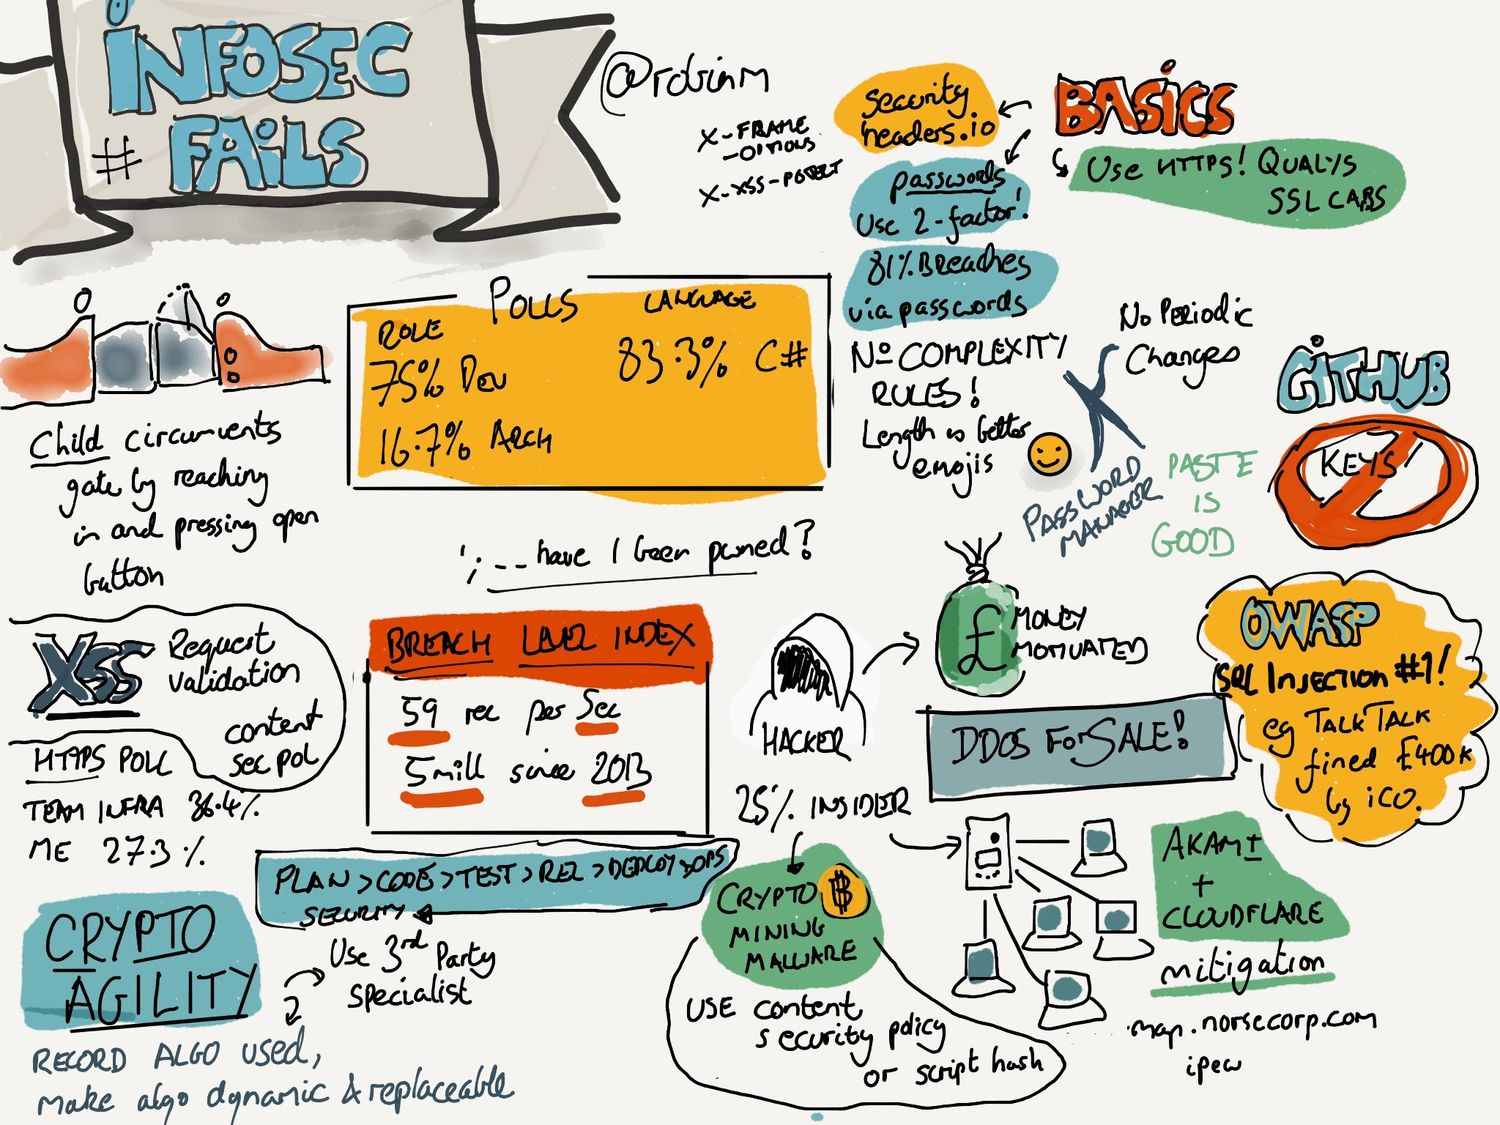 INFOSEC
# FAILS
@robinm
BASICS
security
headers.io
X-FRAME
-OPTIONS
X-XSS-PROTECT
Use HTTPS! QUALYS
SSL LABS
passwords
Use 2-factor!
81% Breaches
via passwords
NO COMPLEXITY
RULES!
Length is better
emojis
No Periodic
Changes
PASSWORD
MANAGER
PASTE
IS
GOOD
GITHUB
KEYS
POLLS
ROLE
75% Dev
16.7% ARCH
LANGUAGE
83.3% C#
Child circumvents
gate by reaching
in and pressing open
button
';-- have I been pwned?
XSS
Request
validation
content
sec pol
HTTPS POLL
TEAM INFRA 36.4%
ME 27.3%
BREACH LEVEL INDEX
59 rec per Sec
5 mill since 2013
HACKER
£
MONEY
MOTIVATED
DDOS For SALE!
OWASP
SQL Injection #1!
eg TALKTALK
fined £400k
by ICO.
25% INSIDER
PLAN > CODE > TEST > REL > DEPLOY > OPS
SECURITY
Use 3rd Party
specialist
CRYPTO
AGILITY
RECORD ALGO used,
make algo dynamic & replaceable
CRYPTO ₿
MINING
MALWARE
USE content
security policy
or script hash
AKAMI
+
CLOUDFLARE
mitigation
map.norsecorp.com
ipew